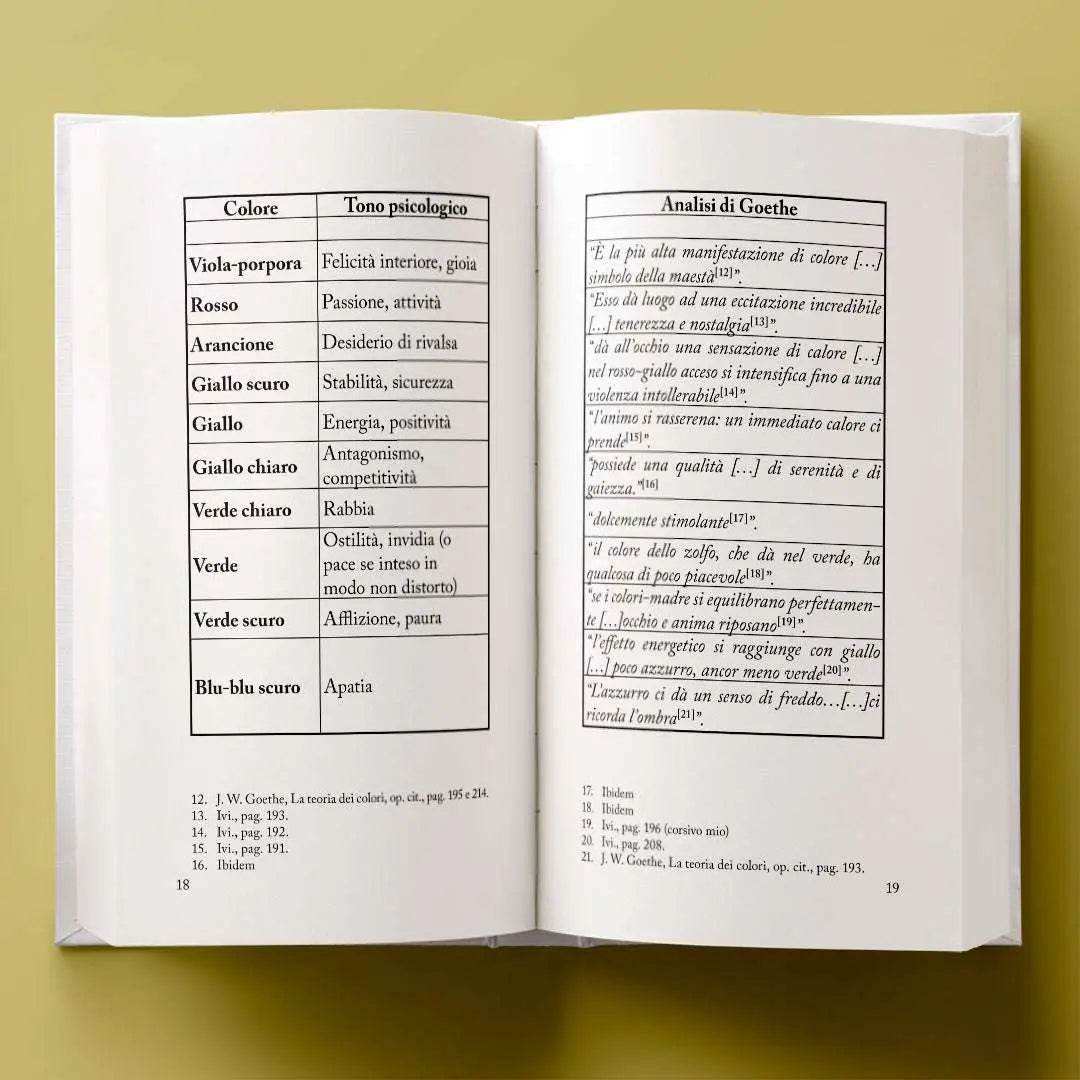 Colore Tono psicologico
Viola-porpora Felicità interiore, gioia
Rosso Passione, attività
Arancione Desiderio di rivalsa
Giallo scuro Stabilità, sicurezza
Giallo Energia, positività
Giallo chiaro Antagonismo,
competitività
Verde chiaro Rabbia
Verde Ostilità, invidia (o
pace se inteso in
modo non distorto)
Verde scuro Afflizione, paura
Blu-blu scuro Apatia
12. J. W. Goethe, La teoria dei colori, op. cit., pag. 195 e 214.
13. Ivi., pag. 193.
14. Ivi., pag. 192.
15. Ivi., pag. 191.
16. Ibidem
18
Analisi di Goethe
“È la più alta manifestazione di colore […]
simbolo della maestà[12]”.
“Esso dà luogo ad una eccitazione incredibile
[…] tenerezza e nostalgia[13]”.
“dà all’occhio una sensazione di calore […]
nel rosso-giallo acceso si intensifica fino a una
violenza intollerabile[14]”.
“l’animo si rasserena: un immediato calore ci
prende[15]”.
“possiede una qualità […] di serenità e di
gaiezza.”[16]
“dolcemente stimolante[17]”.
“il colore dello zolfo, che dà nel verde, ha
qualcosa di poco piacevole[18]”.
“se i colori-madre si equilibrano perfettamen-
te […]occhio e anima riposano[19]”.
“l’effetto energetico si raggiunge con giallo
[…] poco azzurro, ancor meno verde[20]”.
“L’azzurro ci dà un senso di freddo…[…]ci
ricorda l’ombra[21]”.
17. Ibidem
18. Ibidem
19. Ivi., pag. 196 (corsivo mio)
20. Ivi., pag. 208.
21. J. W. Goethe, La teoria dei colori, op. cit., pag. 193.
19